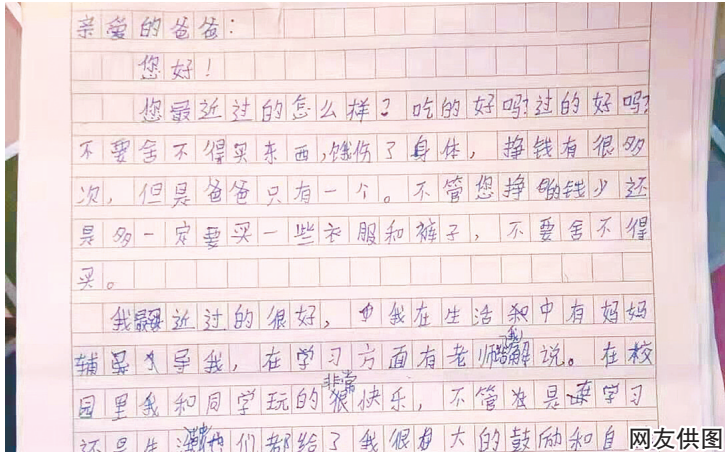 亲爱的爸爸:
您好!
您最近过的怎么样?吃的好吗?过的好吗?
不要舍不得买东西,饿伤了身体,挣钱有很多
次,但是爸爸只有一个。不管您挣的钱少还
是多一定要买一些衣服和裤子,不要舍不得
买。
我最近过的很好,我在生活中有妈妈
辅导我,在学习方面有老师给我解说。在校
园里我和同学玩的非常快乐,不管是在学习
还是生活他们都给了我很大的鼓励和自
网友供图